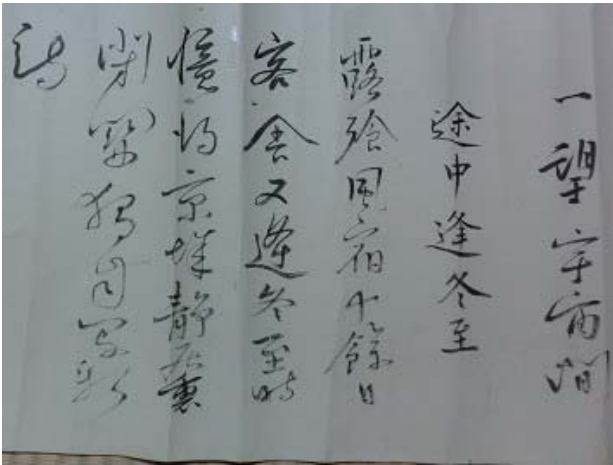 一望宇宙間
途中逢冬至
露飱風宿十餘日
客舍又逢冬至時
憶得京城靜裏
閉關獨自寫新
詩